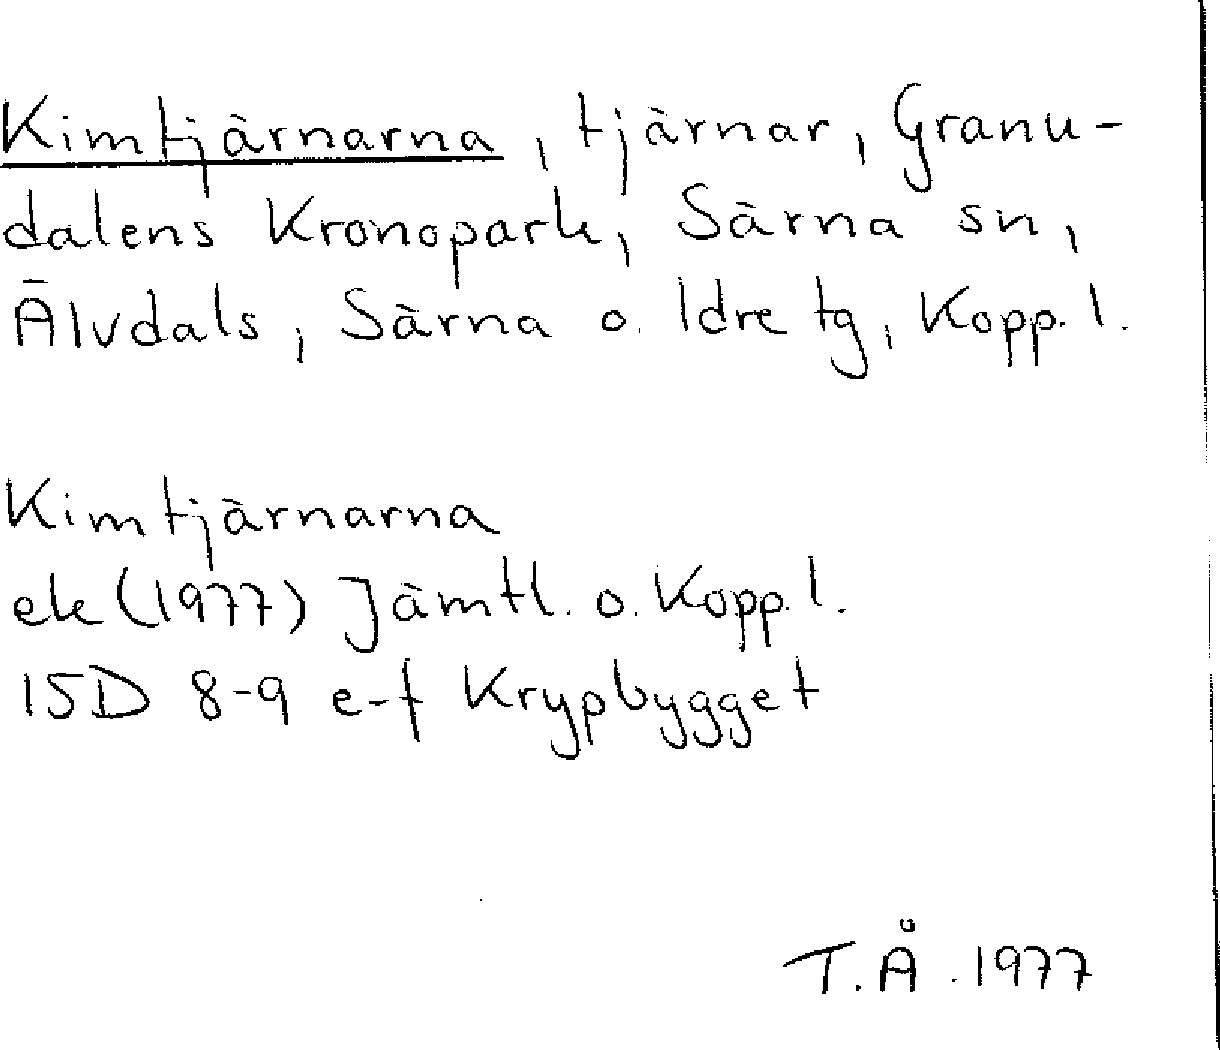 Kimtjärnarna, tjärnar, Granu-
dalens Kronopark, Särna sn,
Älvdals, Särna o. Idre tg, Kopp. l.
Kimtjärnarna
ek (1977) Jämtl. o. Kopp. l.
15D 8-9 e-f Krypbygget
T.Å. 1977